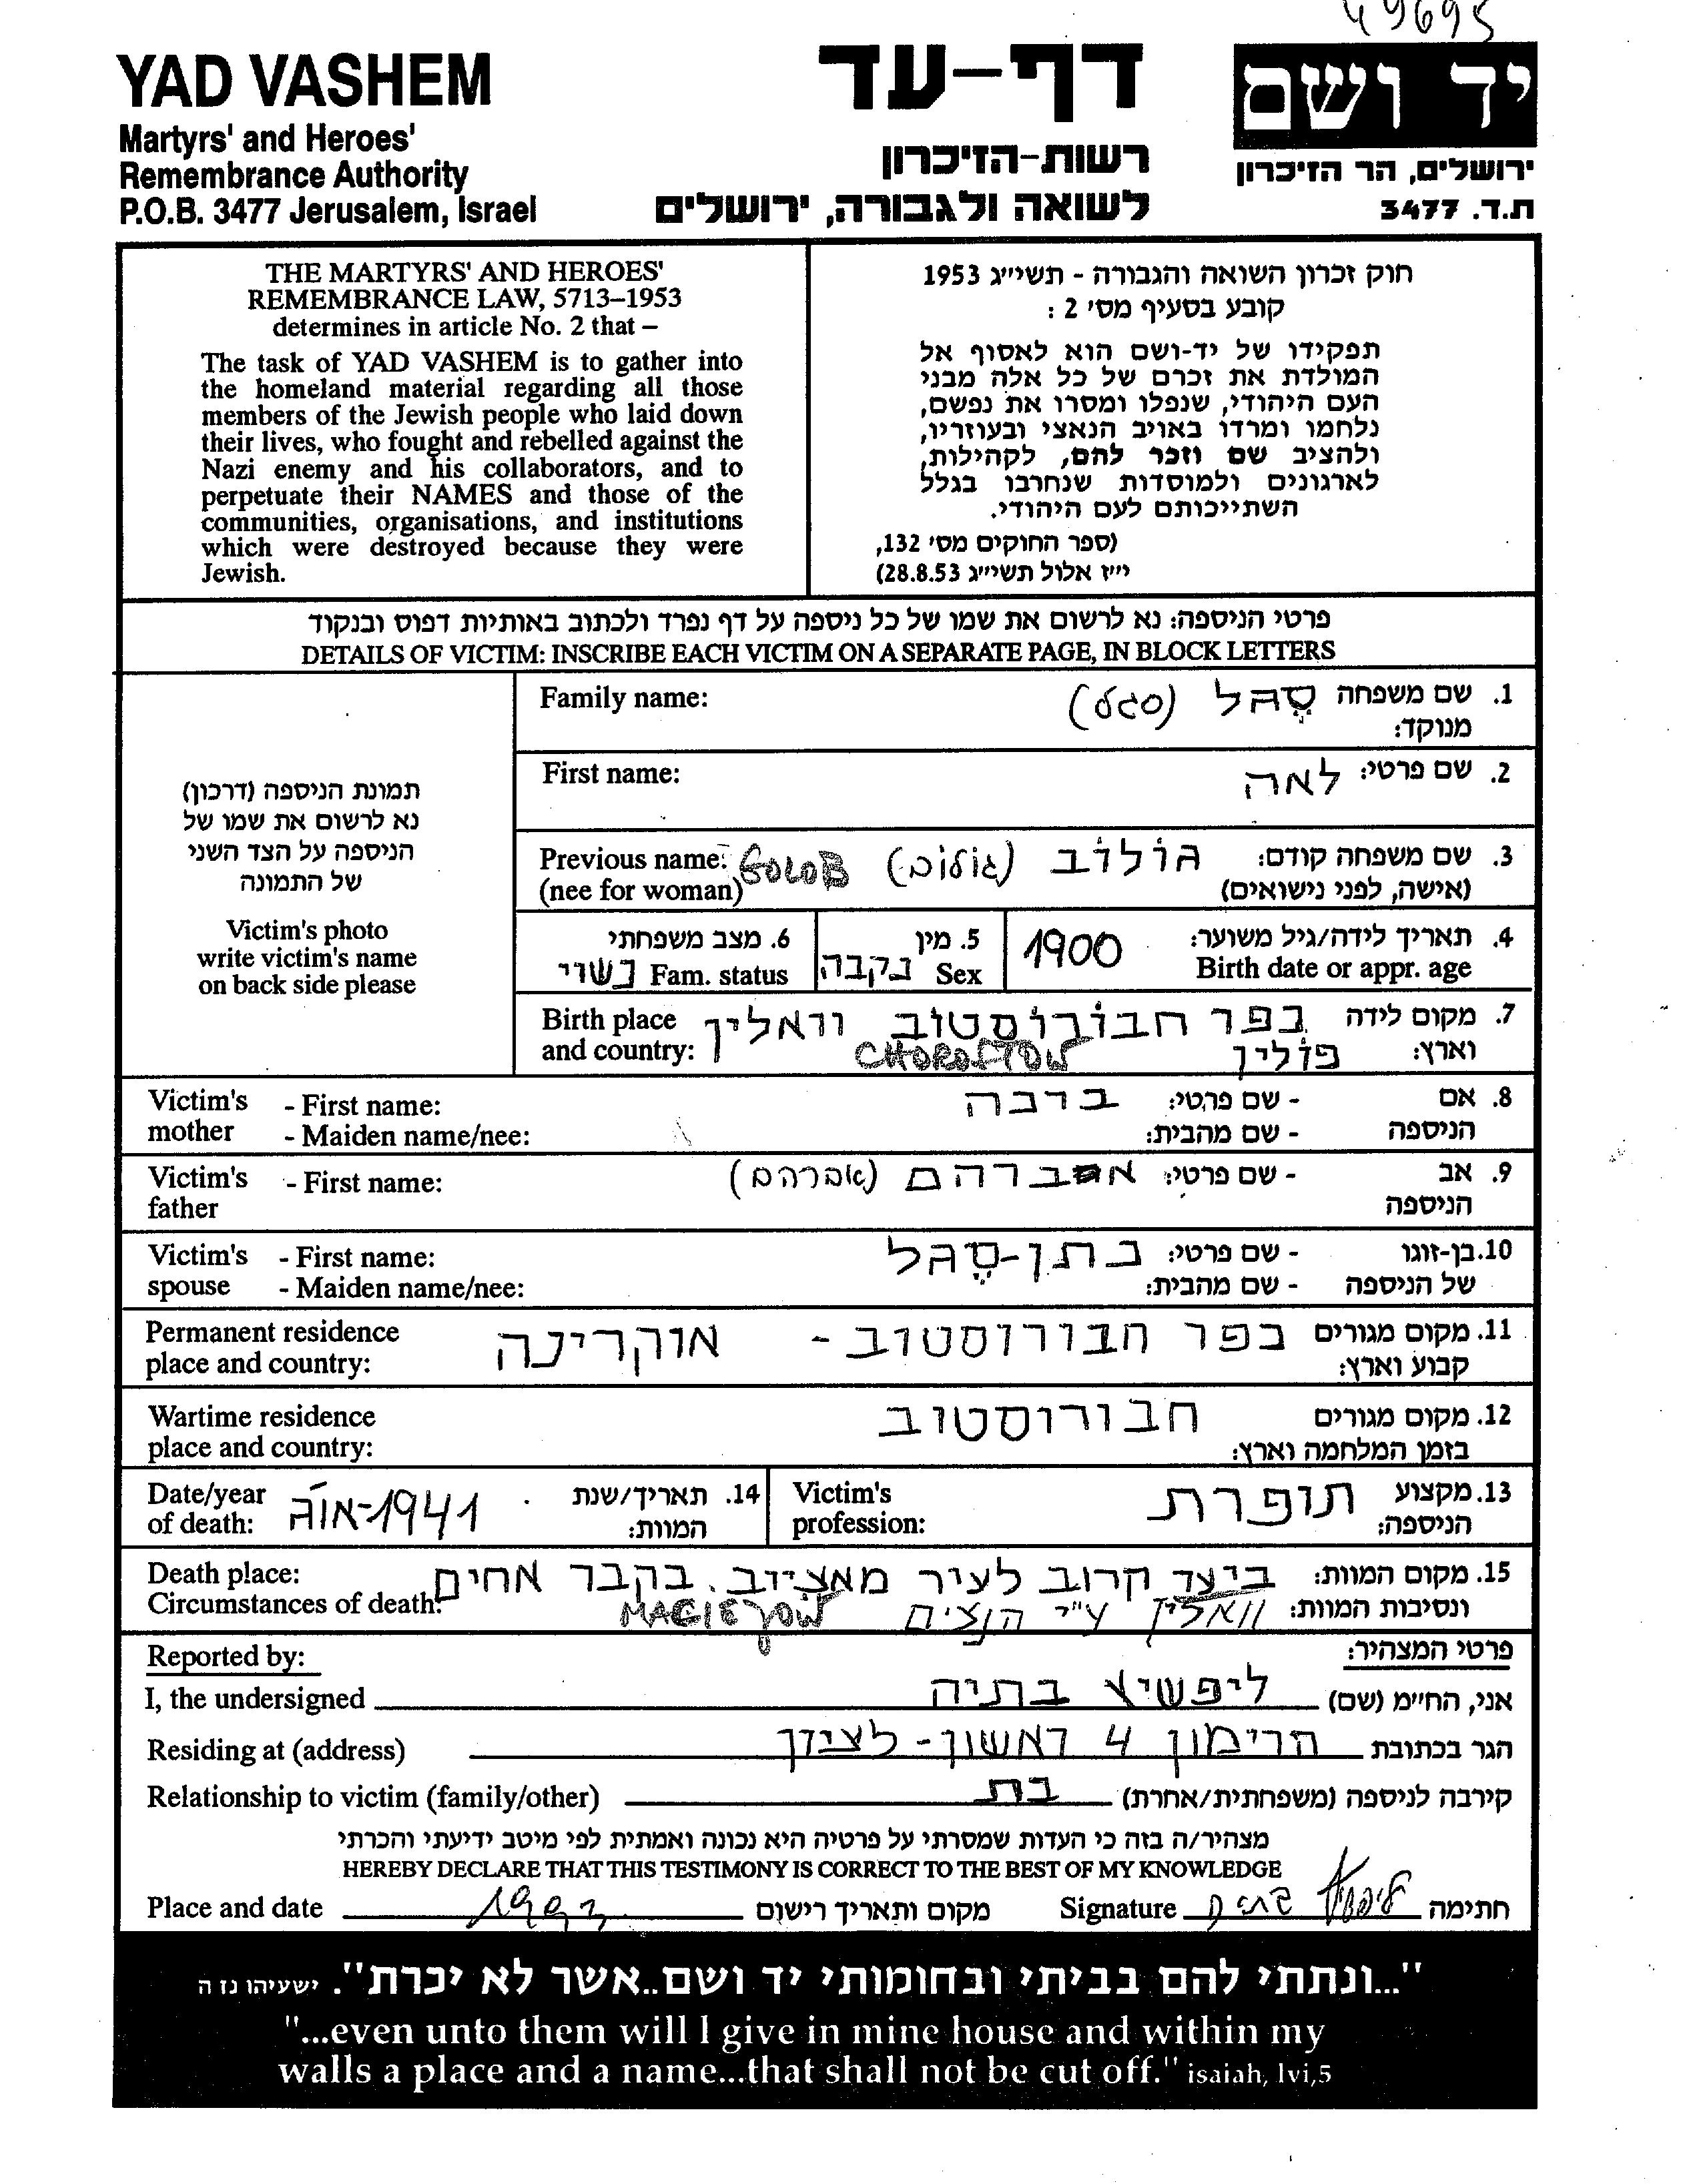 49695
YAD VASHEM
Martyrs' and Heroes'
Remembrance Authority
P.O.B. 3477 Jerusalem, Israel
דף-עד
רשות-הזיכרון
לשואה ולגבורה, ירושלים
יד ושם
ירושלים, הר הזיכרון
ת.ד. 3477
THE MARTYRS' AND HEROES'
REMEMBRANCE LAW, 5713–1953
determines in article No. 2 that –
The task of YAD VASHEM is to gather into
the homeland material regarding all those
members of the Jewish people who laid down
their lives, who fought and rebelled against the
Nazi enemy and his collaborators, and to
perpetuate their NAMES and those of the
communities, organisations, and institutions
which were destroyed because they were
Jewish.
חוק זכרון השואה והגבורה - תשי״ג 1953
קובע בסעיף מס' 2 :
תפקידו של יד-ושם הוא לאסוף אל
המולדת את זכרם של כל אלה מבני
העם היהודי, שנפלו ומסרו את נפשם,
נלחמו ומרדו באויב הנאצי ובעוזריו,
ולהציב שם וזכר להם, לקהילות,
לארגונים ולמוסדות שנחרבו בגלל
השתייכותם לעם היהודי.
(ספר החוקים מס' 132,
י״ז אלול תשי״ג 28.8.53)
פרטי הניספה: נא לרשום את שמו של כל ניספה על דף נפרד ולכתוב באותיות דפוס ובנקוד
DETAILS OF VICTIM: INSCRIBE EACH VICTIM ON A SEPARATE PAGE, IN BLOCK LETTERS
תמונת הניספה (דרכון)
נא לרשום את שמו של
הניספה על הצד השני
של התמונה
Victim's photo
write victim's name
on back side please
Family name: סֶגל (סגל) 1. שם משפחה
מנוקד:
First name: לאה 2. שם פרטי:
Previous name: GOLOB (גולוב) גוֹלוֹב 3. שם משפחה קודם:
(nee for woman) (אישה, לפני נישואים)
4. תאריך לידה/גיל משוער: 1900
Birth date or appr. age
5. מין נקבה
Sex
6. מצב משפחתי
נשוי Fam. status
Birth place כפר חבורוסטוב וואלין 7. מקום לידה
and country: CHOROSTOW פולין וארץ:
Victim's - First name: ברכה - שם פרטי: 8. אם
mother - Maiden name/nee: - שם מהבית: הניספה
Victim's - First name: אברהם (אברהם) - שם פרטי: 9. אב
father הניספה
Victim's - First name: נתן-סֶגל - שם פרטי: 10. בן-זוגו
spouse - Maiden name/nee: - שם מהבית: של הניספה
Permanent residence כפר חבורוסטוב - אוקרינה 11. מקום מגורים
place and country: קבוע וארץ:
Wartime residence חבורוסטוב 12. מקום מגורים
place and country: בזמן המלחמה וארץ:
13. מקצוע תופרת Victim's
הניספה: profession:
14. תאריך/שנת אוג-1941 Date/year
המוות: of death:
Death place: ביער קרוב לעיר מאציוב. בקבר אחים 15. מקום המוות:
Circumstances of death: MACIEJOW וואלין ע"י הנצים ונסיבות המוות:
Reported by: פרטי המצהיר:
I, the undersigned ליפשיץ בתיה אני, החי״מ (שם)
Residing at (address) הרימון 4 ראשון-לציון הגר בכתובת
Relationship to victim (family/other) בת קירבה לניספה (משפחתית/אחרת)
מצהיר/ה בזה כי העדות שמסרתי על פרטיה היא נכונה ואמתית לפי מיטב ידיעתי והכרתי
HEREBY DECLARE THAT THIS TESTIMONY IS CORRECT TO THE BEST OF MY KNOWLEDGE
Place and date מקום ותאריך רישום Signature ליפשיץ בתיה חתימה
"...ונתתי להם בביתי ובחומותי יד ושם..אשר לא יכרת". ישעיהו נז ה
"...even unto them will I give in mine house and within my
walls a place and a name...that shall not be cut off." isaiah, lvi,5